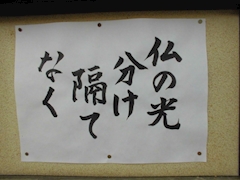 仏の光
分け
隔て
なく